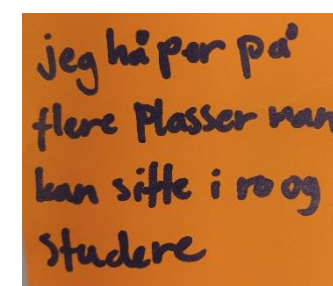 jeg håper på
flere Plasser man
kan sitte i ro og
studere